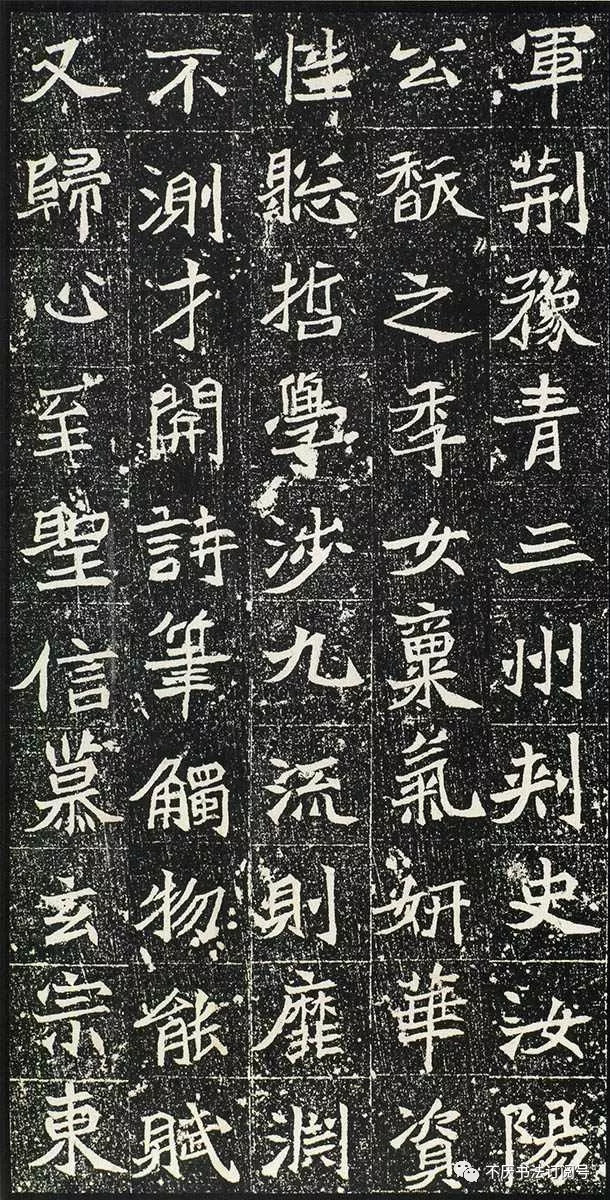 軍荊豫青三州刺史汝陽
公馛之季女稟氣妍華資
性聦哲學涉九流則靡淵
不測才開詩筆觸物能賦
又歸心至聖信慕玄宗東
不厌书法订阅号